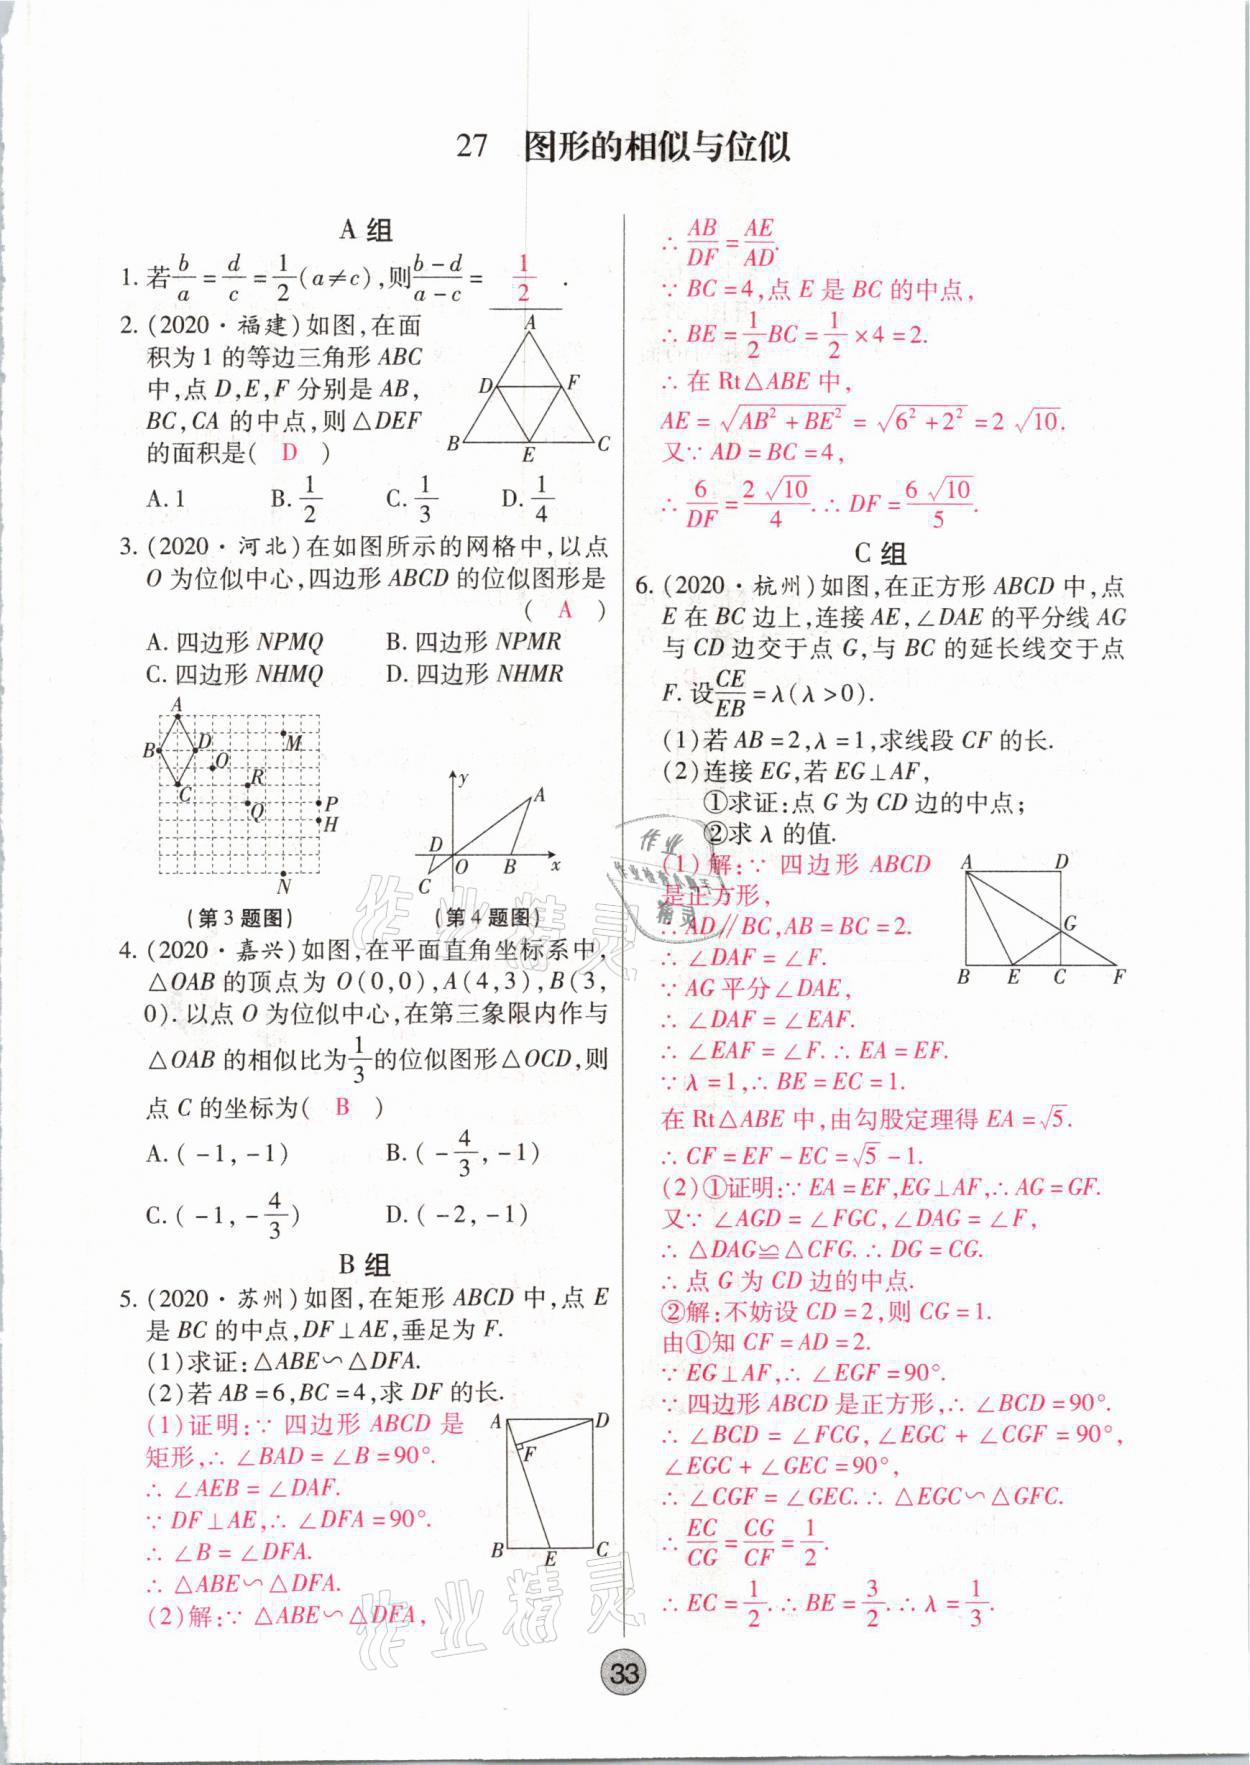 27 图形的相似与位似
A 组
1. 若b/a = d/c = 1/2(a≠c),则(b-d)/(a-c) = 1/2 .
2. (2020·福建)如图,在面
积为1的等边三角形 ABC
中,点 D,E,F 分别是 AB,
BC,CA 的中点,则△DEF
的面积是( D )
A. 1 B. 1/2 C. 1/3 D. 1/4
A
D F
B E C
3. (2020·河北)在如图所示的网格中,以点
O 为位似中心,四边形 ABCD 的位似图形是
( A )
A. 四边形 NPMQ B. 四边形 NPMR
C. 四边形 NHMQ D. 四边形 NHMR
A
B D O M
C R
Q P
H
N
(第3题图)
y
A
D
O B x
C
(第4题图)
4. (2020·嘉兴)如图,在平面直角坐标系中,
△OAB 的顶点为 O(0,0),A(4,3),B(3,
0). 以点 O 为位似中心,在第三象限内作与
△OAB 的相似比为1/3的位似图形△OCD,则
点 C 的坐标为( B )
A. (-1,-1) B. (-4/3,-1)
C. (-1,-4/3) D. (-2,-1)
B 组
5. (2020·苏州)如图,在矩形 ABCD 中,点 E
是 BC 的中点,DF⊥AE,垂足为 F.
(1)求证:△ABE∽△DFA.
(2)若 AB=6,BC=4,求 DF 的长.
(1)证明:∵ 四边形 ABCD 是
矩形,∴ ∠BAD=∠B=90°.
∴ ∠AEB=∠DAF.
∵ DF⊥AE,∴ ∠DFA=90°.
∴ ∠B=∠DFA.
∴ △ABE∽△DFA.
(2)解:∵ △ABE∽△DFA,
A D
F
B E C
∴ AB/DF = AE/AD.
∵ BC=4,点 E 是 BC 的中点,
∴ BE = 1/2 BC = 1/2 ×4=2.
∴ 在 Rt△ABE 中,
AE=√(AB²+BE²)=√(6²+2²)=2√10.
又∵ AD=BC=4,
∴ 6/DF = 2√10/4. ∴ DF = 6√10/5.
C 组
6. (2020·杭州)如图,在正方形 ABCD 中,点
E 在 BC 边上,连接 AE,∠DAE 的平分线 AG
与 CD 边交于点 G,与 BC 的延长线交于点
F. 设CE/EB=λ(λ>0).
(1)若 AB=2,λ=1,求线段 CF 的长.
(2)连接 EG,若 EG⊥AF,
①求证:点 G 为 CD 边的中点;
②求 λ 的值.
(1)解:∵ 四边形 ABCD
是正方形,
∴ AD∥BC,AB=BC=2.
∴ ∠DAF=∠F.
∵ AG 平分∠DAE,
∴ ∠DAF=∠EAF.
∴ ∠EAF=∠F. ∴ EA=EF.
∵ λ=1,∴ BE=EC=1.
在 Rt△ABE 中,由勾股定理得 EA=√5.
∴ CF=EF-EC=√5-1.
A D
G
B E C F
(2)①证明:∵ EA=EF,EG⊥AF,∴ AG=GF.
又∵ ∠AGD=∠FGC,∠DAG=∠F,
∴ △DAG≌△CFG. ∴ DG=CG.
∴ 点 G 为 CD 边的中点.
②解:不妨设 CD=2,则 CG=1.
由①知 CF=AD=2.
∵ EG⊥AF,∴ ∠EGF=90°.
∵ 四边形 ABCD 是正方形,∴ ∠BCD=90°.
∴ ∠BCD=∠FCG,∠EGC+∠CGF=90°,
∠EGC+∠GEC=90°,
∴ ∠CGF=∠GEC. ∴ △EGC∽△GFC.
∴ EC/CG = CG/CF = 1/2.
∴ EC=1/2. ∴ BE=3/2. ∴ λ=1/3.
作业精灵
作业
作业检查小助手
精灵
作业精灵
33